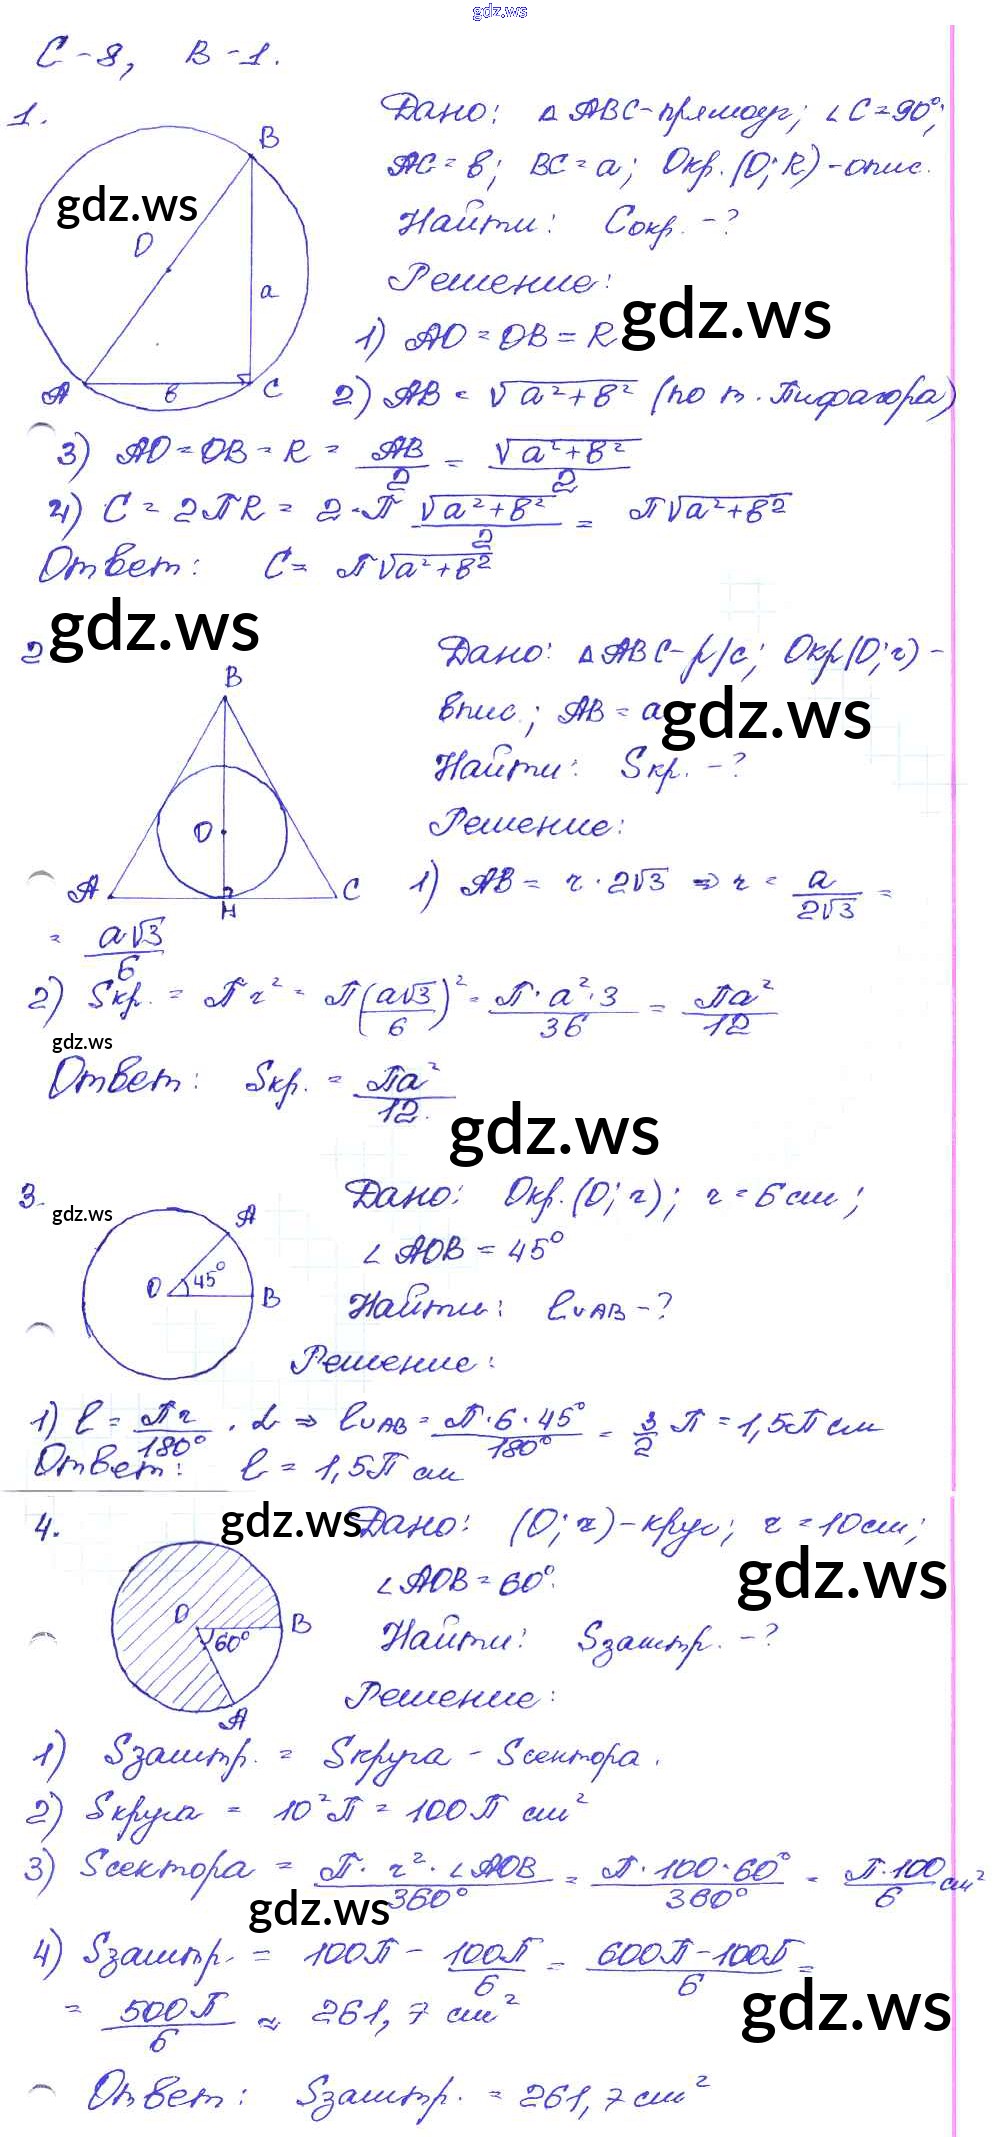 gdz.ws
С-8, В-1.
1.
Дано: △ ABC-прямоуг; ∠C=90°;
AC=в; BC=a; Окр.(O;R)-опис.
gdz.ws
Найти: Cокр.-?
B
O
a
A
в
C
Решение:
gdz.ws
1) AO=OB=R
2) AB=√a²+в² (по т. Пифагора)
3) AO=OB=R= AB/2 = √a²+в²/2
4) C=2ПR=2·П √a²+в²/2 = П√a²+в²
Ответ: C= П√a²+в²
gdz.ws
2
Дано: △ABC-р/с; Окр(O;r)-
впис.; AB=a
gdz.ws
Найти: Sкр.-?
B
O
A
H
C
Решение:
1) AB= r·2√3 ⇒ r= a/2√3 =
= a√3/6
2) Sкр. = Пr² = П(a√3/6)² = П·a²·3/36 = Пa²/12
gdz.ws
Ответ: Sкр. = Пa²/12.
gdz.ws
3.
gdz.ws
Дано: Окр.(O;r); r=6см;
∠AOB=45°
A
O
45°
B
Найти: l∪AB-?
Решение:
1) l= Пr/180° · α ⇒ l∪AB= П·6·45°/180° = 3/2 П=1,5П см
Ответ: l=1,5П см
4.
gdz.ws
Дано: (O;r)-круг; r=10см;
∠AOB=60°.
gdz.ws
O
B
60°
A
Найти: Sзаштр.-?
Решение:
1) Sзаштр. = Sкруга - Sсектора.
2) Sкруга = 10²П=100П см²
3) Sсектора = П·r²·∠AOB/360° = П·100·60°/360° = П·100/6 см²
gdz.ws
4) Sзаштр. = 100П- 100П/6 = 600П-100П/6 =
= 500П/6 ≈ 261,7 см²
gdz.ws
Ответ: Sзаштр. =261,7см²